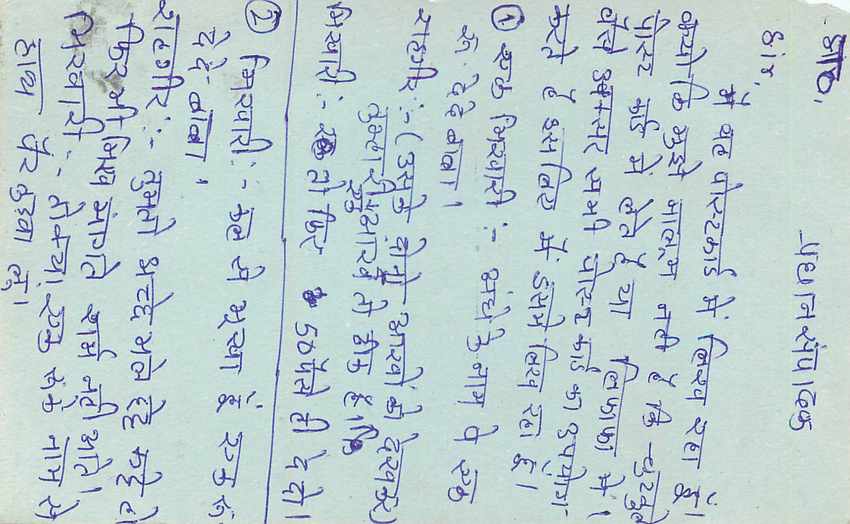 प्रधान संपादक
डा०,
डांर,
मैं यह पोस्टकार्ड में लिख रहा हूँ।
क्योकि मुझे मालूम नही है कि चुटकुले
पोस्ट कार्ड मे लेते है या लिफाफा में।
वैसे अक्सर सभी पोस्ट कार्ड का उपयोग
करते है इसलिए मैं इसमे लिख रहा हूँ।
① एक भिखारी :- अंधे के नाम पे एक
रू. दे दे बाबा।
राहगीर :- (उसके दोनो आखों को देखकर)
तुम्हारी एक आख तो ठीक है।
भिखारी :- तो फिर 50 पैसे ही दे दो।
② भिखारी :- कल से भूखा हूं एक रू.
दे दे बाबा।
राहगीर :- तुमतो अच्छे भले हट्टे कट्टे हो
फिर भी भिख मांगते शर्म नही आती।
भिखारी :- तो क्या एक रू के नाम से
हाथ पैर तुड़वा लू।